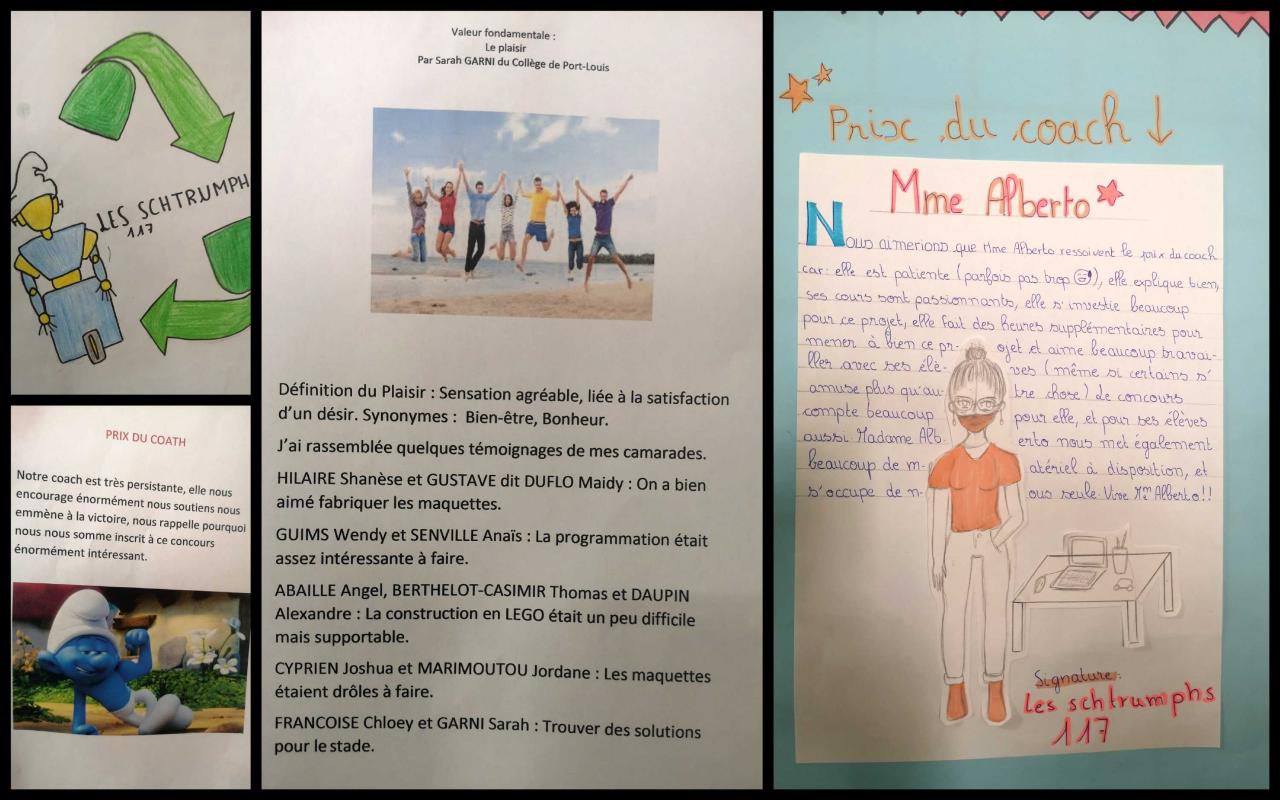 LES SCHTRUMPH
117
PRIX DU COATH
Notre coach est très persistante, elle nous
encourage énormément nous soutiens nous
emmène à la victoire, nous rappelle pourquoi
nous nous somme inscrit à ce concours
énormément intéressant.
Valeur fondamentale :
Le plaisir
Par Sarah GARNI du Collège de Port-Louis
Définition du Plaisir : Sensation agréable, liée à la satisfaction
d'un désir. Synonymes : Bien-être, Bonheur.
J'ai rassemblée quelques témoignages de mes camarades.
HILAIRE Shanèse et GUSTAVE dit DUFLO Maidy : On a bien
aimé fabriquer les maquettes.
GUIMS Wendy et SENVILLE Anaïs : La programmation était
assez intéressante à faire.
ABAILLE Angel, BERTHELOT-CASIMIR Thomas et DAUPIN
Alexandre : La construction en LEGO était un peu difficile
mais supportable.
CYPRIEN Joshua et MARIMOUTOU Jordane : Les maquettes
étaient drôles à faire.
FRANCOISE Chloey et GARNI Sarah : Trouver des solutions
pour le stade.
Prix du coach ↓
Mme Alberto
Nous aimerions que Mme Alberto ressoivent le prix du coach
car : elle est patiente (parfois pas trop 😅), elle explique bien,
ses cours sont passionnants, elle s'investie beaucoup
pour ce projet, elle fait des heures supplémentaires pour
mener à bien ce pr- ojet et aime beaucoup travai-
ller avec ses élè- ves (même si certains s'
amuse plus qu'au- tre chose) Le concours
compte beaucoup pour elle, et pour ses élèves
aussi. Madame Alb- erto nous met également
beaucoup de m- atériel à disposition, et
s'occupe de n- ous seule. Vive Mme Alberto !!
Signature :
Les schtrumphs
117